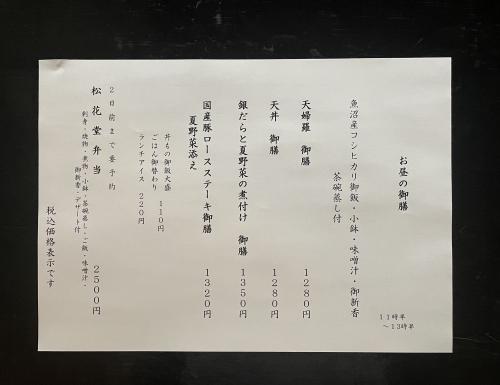 お昼の御膳
11時半
～13時半
魚沼産コシヒカリ御飯・小鉢・味噌汁・御新香
茶碗蒸し付
天婦羅 御膳 1280円
天丼 御膳 1280円
銀だらと夏野菜の煮付け 御膳 1350円
国産豚ロースステーキ御膳 1320円
夏野菜添え
丼もの御飯大盛
ごはん御替わり 110円
ランチアイス 220円
2日前まで要予約
松花堂弁当 2500円
刺身・焼物・煮物・小鉢・茶碗蒸し・ご飯・味噌汁・
御新香・デザート付
税込価格表示です